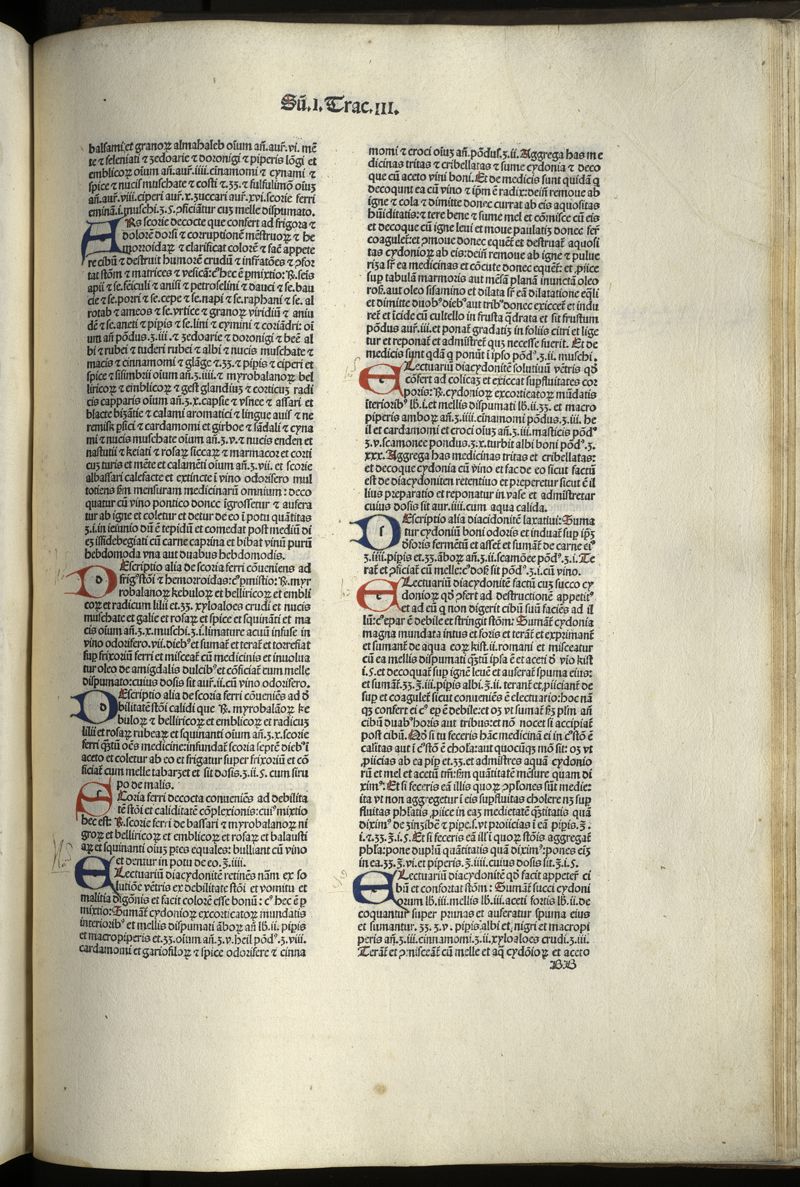 Sũ.I.Trac.III.
balsami et granoꝝ almahaleb oíum añ.aur̃.vi. mẽ
te ⁊ seleniati ⁊ zedoarie ⁊ doronigi ⁊ piperis lõgi et
emblicoꝝ oium añ.aur̃.iiii.cinamomi ⁊ cynami ⁊
spice ⁊ nucis muschate ⁊ costi ⁊.ʒʒ.⁊ fulfulimõ oiuʒ
añ.aur̃.viii.ciperi aur̃.x.zuccari aur̃.xvi.scorie ferri
eminã.i.muschi.ʒ.s.ꝯficiãtur cuʒ melle dispumato.
ARs scorie decocte que confert ad frigora ⁊
dolorẽ dorsi ⁊ corruptionẽ mẽstruoꝝ ⁊ he
morroidaꝝ ⁊ clarificat colorẽ ⁊ fac̃ appete
re cibũ ⁊ destruit humorẽ crudũ ⁊ infl̃atões ⁊ ꝯfor
tat stõm ⁊ matrices ⁊ vesicã:eᵒ hec ẽ ꝑmixtio:℞.seis
apii ⁊ se.feĩculi ⁊ anisi ⁊ petroselini ⁊ dauci ⁊ se.bau
cie ⁊ se.porri ⁊ se.cepe ⁊ se.napi ⁊ se.raphani ⁊ se. al
rotab ⁊ ameos ⁊ se.vrtice ⁊ granoꝝ viridiũ ⁊ aniu
dẽ ⁊ se.aneti ⁊ pipis ⁊ se.lini ⁊ cymini ⁊ coriãdri: oí
um añ põdus.ʒ.iii.⁊ zedoarie ⁊ doronigi ⁊ beẽ al
bi ⁊ rubei ⁊ tuderi rubei ⁊ albi ⁊ nucis muschate ⁊
macis ⁊ cinnamomi ⁊ glãge ⁊.ʒʒ.⁊ pipis ⁊ ciperi et
spice ⁊ sisimbrii oium añ.ʒ.iiii.⁊ myrobalanoꝝ bel
liricoꝝ ⁊ emblicoꝝ ⁊ gest glandiuʒ ⁊ corticuʒ radi
cis capparis oíum añ.ʒ.x.capsie ⁊ vsnee ⁊ assari et
blacte bizãtie ⁊ calami aromatici ⁊ lingue auis ⁊ ne
remisk ꝑsici ⁊ cardamomi ⁊ girboe ⁊ sãdali ⁊ cyna
mi ⁊ nucis muschate oíum añ.ʒ.v.⁊ nucis enden et
nasturii ⁊ keiati ⁊ rosaꝝ siccaꝝ ⁊ marmacor et corti
cuʒ turis et mẽte et calamẽti oíum añ.ʒ.vii. et scorie
albassari calefacte et extincte ĩ vino odorifero mul
totiens ẽm mensuram medicinarũ omnium : deco
quatur cũ vino pontico donec ĩgrossetur ⁊ aufera
tur ab igne et coletur et detur de eo ĩ potu quãtitas
ʒ.i.in ieiunio dũ ẽ tepidũ et comedat post mediũ di
eʒ issidebegiati cũ carne capzina et bibat vinũ purũ
hebdomoda vna aut duabus hebdomodis.
DEscriptio alia de scoria ferri cõueniens ad
frigᵒ stõi ⁊ hemorroidas:eᵒ ꝑmistio:℞.myr
robalanoꝝ kebuloꝝ et belliricoꝝ et embli
coꝝ et radicum lilii et.ʒʒ.xyloaloes crudi et nucis
muschate et galie et rosaꝝ et spice et squinãti et ma
cis oíum añ.ʒ.x.muschi.ʒ.i.limature acuũ infuse in
vino odorifero.vii.diebᵒ et sumat̃ et terat̃ et torrefiat
suꝑ frixoriũ ferri et misceat̃ cũ medicinis et inuolua
tur oleo de amigdalis dulcibᵒ et cõficiat̃ cum melle
dispumato:cuius dosis sit aur̃.ii.cũ vino odorifero.
DEscriptio alia de scoria ferri cõueniẽs ad d
bilitatẽ stõi calidi que ℞. myrobalãoꝝ ke
buloꝝ ⁊ belliricoꝝ et emblicoꝝ et radicuʒ
lilii et rosaꝝ rubeaꝝ et squinanti oíum añ.ʒ.x.scorie
ferri q̃tũ oẽs medicine:infundat̃ scoria septẽ diebᵒ ĩ
aceto et coletur ab eo et frigatur super frixoriũ et cõ
ficiat̃ cum melle tabarzet et sit dosis.ʒ.ii.s. cum siru
po de malis.
SCoria ferri decocta conueniẽs ad debilita
tẽ stõi et caliditatẽ cõplexionis:cuiᵒ mixtio
hec est: ℞.scorie feri de bassari ⁊ myrobalanoꝝ ni
groꝝ et belliricoꝝ et emblicoꝝ et rosaꝝ et balausti
aꝝ et squinanti oíuʒ ptes equales: bulliant cũ vino
et dentur in potu de eo.ʒ.iiii.
ELectuariũ diacydonitẽ retinẽs nãm ex so
lutiõe vẽtris ex debilitate stõi et vomitu et
malitia digõnis et facit colorẽ esse bonũ : eᵒ hec ẽ ꝑ
mixtio:Sumãt̃ cydonioꝝ excorticatoꝝ mundatis
interioribᵒ et mellis dispumati ãboꝝ añ lb.ii. pipis
et macropiperis et.ʒʒ.oíum añ.ʒ.v.heil põdᵒ.ʒ.viii.
cardamomi et gariofiloꝝ ⁊ spice odorifere ⁊ cinna
momi ⁊ croci oíuʒ añ.põdus.ʒ.ii.Aggrega has me
dicinas tritas ⁊ cribellatas ⁊ sume cydonia ⁊ deco
que cũ aceto vini boni.Et de medicis sunt quidã q
decoqunt ea cũ vino ⁊ ip̃m ẽ radix:dein remoue ab
igne ⁊ cola ⁊ dimitte donec currat ab eis aquositas
hũiditatis:⁊ tere bene ⁊ sume mel et cõmisce cũ eis
et decoque cũ igne leui et moue paulatiʒ donec fer̃
coagulet̃:et ꝓmoue donec equẽt̃ et destruat̃ aquosi
tas cydonioꝝ ab eis:dein remoue ab igne ⁊ pulue
riza sr̃ ea medicinas et cõcute donec equẽt̃: et ꝓiice
sup tabulã marmoris aut mẽsã planã inunctã oleo
rof.aut oleo sisamino et dilata sr̃ eã dilatatione eq̃li
et dimitte duobᵒ diebᵒ aut tribᵒ donec exiccet̃ et indu
ret̃ et ĩcide cũ cultello in frusta q̃drata et sit frustum
põdus aur̃.iii.et ponat̃ gradatiʒ in foliis citri et lige
tur et reponat̃ et admistret̃ quʒ necesse fuerit. Et de
medicis sunt qdã q ponũt ĩ ipso põdᵒ.ʒ.ii. muschi.
ELectuariũ diacydonitẽ solutiuũ vẽtris qd
cõfert ad colicaʒ et exiccat supfluitates cor
poris:℞.cydonioꝝ excorticatoꝝ mũdatis
ĩterioribᵒ lb.i.et mellis dispumati lb.ii.ʒʒ. et macro
piperis amboꝝ añ.ʒ.iiii.cinamomi põdus.ʒ.iii. he
il et cardamomi et croci oíuʒ añ.ʒ.iii.masticis põdᵒ
ʒ.v.scamonee pondus.ʒ.x.turbit albi boni põdᵒ.ʒ.
xxx.Aggrega has medicinas tritas et cribellatas:
et decoque cydonia cũ vino et fac de eo sicut factũ
est de diacydoniten retentiuo et preperetur sicut ẽ il
lius preparatio et reponatur in vase et admistretur
cuius dosis sit aur.iiii.cum aqua calida.
DEscriptio alia diacidonitẽ laxatiui:Suma
tur cydoniũ boni odoris et induat̃ sup ip̃ʒ
dforis fermẽtũ et asset̃ et sumat̃ de carne eiᵒ
ʒ.iiii.pipis et.ʒʒ.ãboꝝ añ.ʒ.ii.scamõee põdᵒ.ʒ.i.Te
rat̃ et ꝯficiat̃ cũ melle:eᵒ dos̃ sit põdᵒ.ʒ.i.cũ vino.
ELectuariũ diacydonitẽ factũ cuʒ succo cy
donioꝝ qd ꝯfert ad destructionẽ appetitᵒ
et ad cũ q non digerit cibũ suũ faciẽs ad il
lũ:eᵒ epar ẽ debile et stringit stõm: Sumãt̃ cydonia
magna mundata intus et foris et terãt̃ et exprimant̃
et sumant̃ de aqua eoꝝ kist.ii.romani et misceatur
cũ ea mellis dispumati q̃stũ ipsa ẽ et aceti d vio kist
i.s.et decoquat̃ sup ignẽ leuẽ et auferat̃ spuma eius:
et sumãt̃.ʒʒ.ʒ.iii.pipis albi.ʒ.ii. terant̃ et ꝓiiciant̃ de
sup et coagulet̃ sicut conueniẽs ẽ electuario:hoc nã
qʒ confert ei cᵒ epʒ ẽ debile:et oʒ vt sumat̃ ẽʒ pʒm añ
cibũ duabᵒ horis aut tribus:et nõ nocet si accipiat̃
post cibũ.Qd si tu feceris hãc medicinã ei in cᵒ stõ ẽ
caliditas aut ĩ eᵒ stõ ẽ chola:aut quocũqʒ mõ sit: oʒ vt
ꝓiicias ab ea pip et.ʒʒ.et admistres aquã cydonio
rũ et mel et acetũ tm̃:ẽm quãtitatẽ mẽsure quam di
ximᵒ:Et si feceris eã illis quoꝝ ꝯplõnes sũt medie:
ita vt non aggregetur ĩ eis supfluitas cholere nʒ sup
fluitas phl̃atis ꝓiice in eaʒ medietatẽ q̃titatis quã
diximᵒ de zinzibẽ ⁊ pipe.s.vt proiicias ĩ eã pipis.ʒ.
i.⁊.ʒʒ.ʒ.i.s.Et si feceris eã ill̃ ĩ quoꝝ stõis aggregat̃
phl̃a:pone duplũ quãtitatis quã diximᵒ:pones eiʒ
in ea.ʒʒ.ʒ.vi.et piperis.ʒ.iiii.cuius dosis sit.ʒ.i.s.
ELectuariũ diacydonitẽ qd facit appeter̃ ci
bũ et confortat stõm : Sumãt̃ succi cydoni
orum lb.iii.mellis lb.iii.aceti fortis lb.ii.de
coquantur super prunas et auferatur spuma eius
et sumantur. ʒʒ.ʒ.v. pipis.albi et.nigri et macropi
peris añ.ʒ.iii.cinnamomi.ʒ.ii.xyloaloes crudi.ʒ.iii.
Terãt̃ et ꝯmisceãt̃ cũ melle et aq̃ cydõioꝝ et aceto
BB